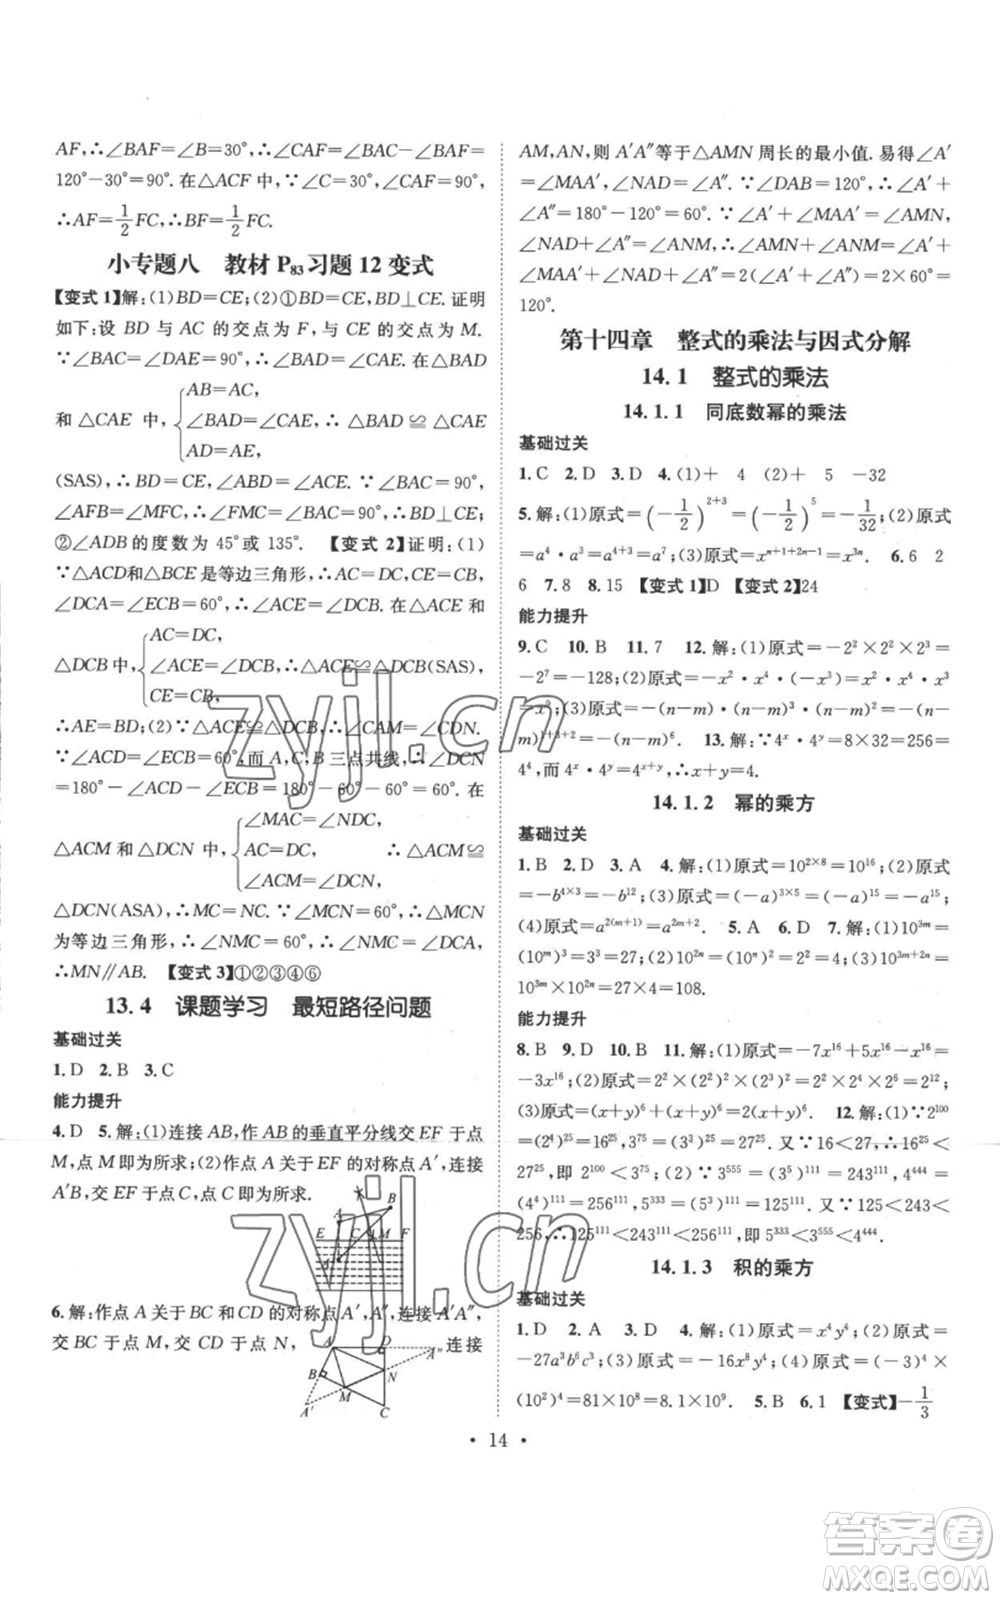 AF,∴∠BAF=∠B=30°,∴∠FAC=∠BAC-∠BAF=
120°-30°=90°. 在△ACF 中,∵∠C=30°,∠CAF=90°,
∴AF=1/2 FC,∴BF=1/2 FC.
小专题八 教材 P₈₃习题 12 变式
【变式 1】解:(1)BD=CE;(2)①BD=CE,BD⊥CE. 证明
如下:设 BD 与 AC 的交点为 F,与 CE 的交点为 M.
∵∠BAC=∠DAE=90°,∴∠BAD=∠CAE. 在△BAD
和△CAE 中,{AB=AC,
∠BAD=∠CAE,∴△BAD≌△CAE
AD=AE,
(SAS),∴BD=CE,∠ABD=∠ACE. ∵∠BAC=90°,
∠AFB=∠MFC,∴∠FMC=∠BAC=90°,∴BD⊥CE;
②∠ADB 的度数为 45°或 135°. 【变式 2】证明:(1)
∵△ACD和△BCE 是等边三角形,∴AC=DC,CE=CB,
∠DCA=∠ECB=60°,∴∠ACE=∠DCB. 在△ACE 和
△DCB 中,{AC=DC,
∠ACE=∠DCB,∴△ACE≌△DCB(SAS),
CE=CB,
∴AE=BD;(2)∵△ACE≌△DCB,∴∠CAM=∠CDN.
∵∠ACD=∠ECB=60°,而 A,C,B 三点共线,∴∠DCN
=180°-∠ACD-∠ECB=180°-60°-60°=60°. 在
△ACM 和△DCN 中,{∠MAC=∠NDC,
AC=DC, ∴△ACM≌
∠ACM=∠DCN,
△DCN(ASA),∴MC=NC. ∵∠MCN=60°,∴△MCN
为等边三角形,∴∠NMC=60°,∴∠NMC=∠DCA,
∴MN∥AB. 【变式 3】①②③④⑥
13.4 课题学习 最短路径问题
基础过关
1.D 2.B 3.C
能力提升
4.D 5.解:(1)连接 AB,作 AB 的垂直平分线交 EF 于点
M,点 M 即为所求;(2)作点 A 关于 EF 的对称点 A′,连接
A′B,交 EF 于点 C,点 C 即为所求.
A B
E C M F
6.解:作点 A 关于 BC 和 CD 的对称点 A′,A″,连接 A′A″,
交 BC 于点 M,交 CD 于点 N, 连接
A D A″
B N
A′ M C
AM,AN,则 A′A″等于△AMN 周长的最小值. 易得∠A′
=∠MAA′,∠NAD=∠A″. ∵∠DAB=120°,∴∠A′+
∠A″=180°-120°=60°. ∵∠A′=∠MAA′,∠NAD=
∠A″,且∠A′+∠MAA′=∠AMN,∠NAD+∠A″=
∠ANM,∴∠AMN+∠ANM=∠A′+∠MAA′+
∠NAD+∠A″=2(∠A′+∠A″)=2×60°=
120°.
第十四章 整式的乘法与因式分解
14.1 整式的乘法
14.1.1 同底数幂的乘法
基础过关
1.C 2.D 3.D 4.(1)+ 4 (2)+ 5 -32
5.解:(1)原式=(-1/2)²⁺³=(-1/2)⁵=-1/32;(2)原式
=a⁴·a³=a⁴⁺³=a⁷;(3)原式=xⁿ⁺¹⁺²ⁿ⁻¹=x³ⁿ. 6.6 2
6 7.8 8.15 【变式 1】D 【变式 2】24
能力提升
9.C 10.B 11.7 12.解:(1)原式=-2²×2²×2³=
-2⁷=-128;(2)原式=-x²·x⁴·(-x³)=x²·x⁴·x³
=x⁹;(3)原式=-(n-m)·(n-m)³·(n-m)²=-(n-
m)¹⁺³⁺²=-(n-m)⁶. 13.解:∵4ˣ·4ʸ=8×32=256=
4⁴,而 4ˣ·4ʸ=4ˣ⁺ʸ,∴x+y=4.
14.1.2 幂的乘方
基础过关
1.B 2.D 3.A 4.解:(1)原式=10²ˣ⁸=10¹⁶;(2)原式
=-b⁴ˣ³=-b¹²;(3)原式=(-a)³ˣ⁵=(-a)¹⁵=-a¹⁵;
(4)原式=a²⁽ᵐ⁺¹⁾=a²ᵐ⁺². 5.A 6.D 7.解:(1)10³ᵐ=
(10ᵐ)³=3³=27;(2)10²ⁿ=(10ⁿ)²=2²=4;(3)10³ᵐ⁺²ⁿ=
10³ᵐ×10²ⁿ=27×4=108.
能力提升
8.B 9.D 10.B 11.解:(1)原式=-7x¹⁶+5x¹⁶-x¹⁶=
-3x¹⁶;(2)原式=2²×(2²)²×(2³)²=2²×2⁴×2⁶=2¹²;
(3)原式=(x+y)⁶+(x+y)⁶=2(x+y)⁶. 12.解:(1)∵2¹⁰⁰
=(2⁴)²⁵=16²⁵,3⁷⁵=(3³)²⁵=27²⁵. 又∵16<27,∴16²⁵<
27²⁵,即 2¹⁰⁰<3⁷⁵;(2)∵3⁵⁵⁵=(3⁵)¹¹¹=243¹¹¹,4⁴⁴⁴=
(4⁴)¹¹¹=256¹¹¹,5³³³=(5³)¹¹¹=125¹¹¹. 又∵125<243<
256,∴125¹¹¹<243¹¹¹<256¹¹¹,即 5³³³<3⁵⁵⁵<4⁴⁴⁴.
14.1.3 积的乘方
基础过关
1.D 2.A 3.D 4.解:(1)原式=x⁴y⁴;(2)原式=
-27a³b⁶c³;(3)原式=-16x⁸y¹²;(4)原式=9²×
(10²)⁴=81×10⁸=8.1×10⁹. 5.B 6.1 【变式】-1/3
• 14 •
zyjl.cn
zyjl.cn
答案卷
MXQE.COM